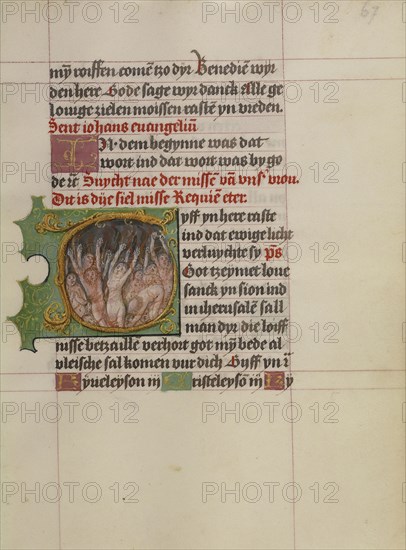 67
mÿ roiffen comē tzo dyr Benediē wyr
den here Gode sage wyr danck alle ge
louige zielen moissen rastē yn vreden.
Sent iohans euangeliū
IN dem begynne was dat
wort ind dat wort was by go
de rc̄ Suycht nae der missē vā vnsʳ vrou.
Dit is dye siel misse Requiē eter.
Gyff yn here raste
ind dat ewige licht
verluychte sy ps
Got tzeymet loue
sanck yn sion ind
in iherusalē sall
man dyr die loiff
nisse betzaille verhort got mÿ bede al
vleische sal komen vur dich Gyff yn rc̄
Kyrieleyson iij Cristeleysō iij Ky
PHOTO 12